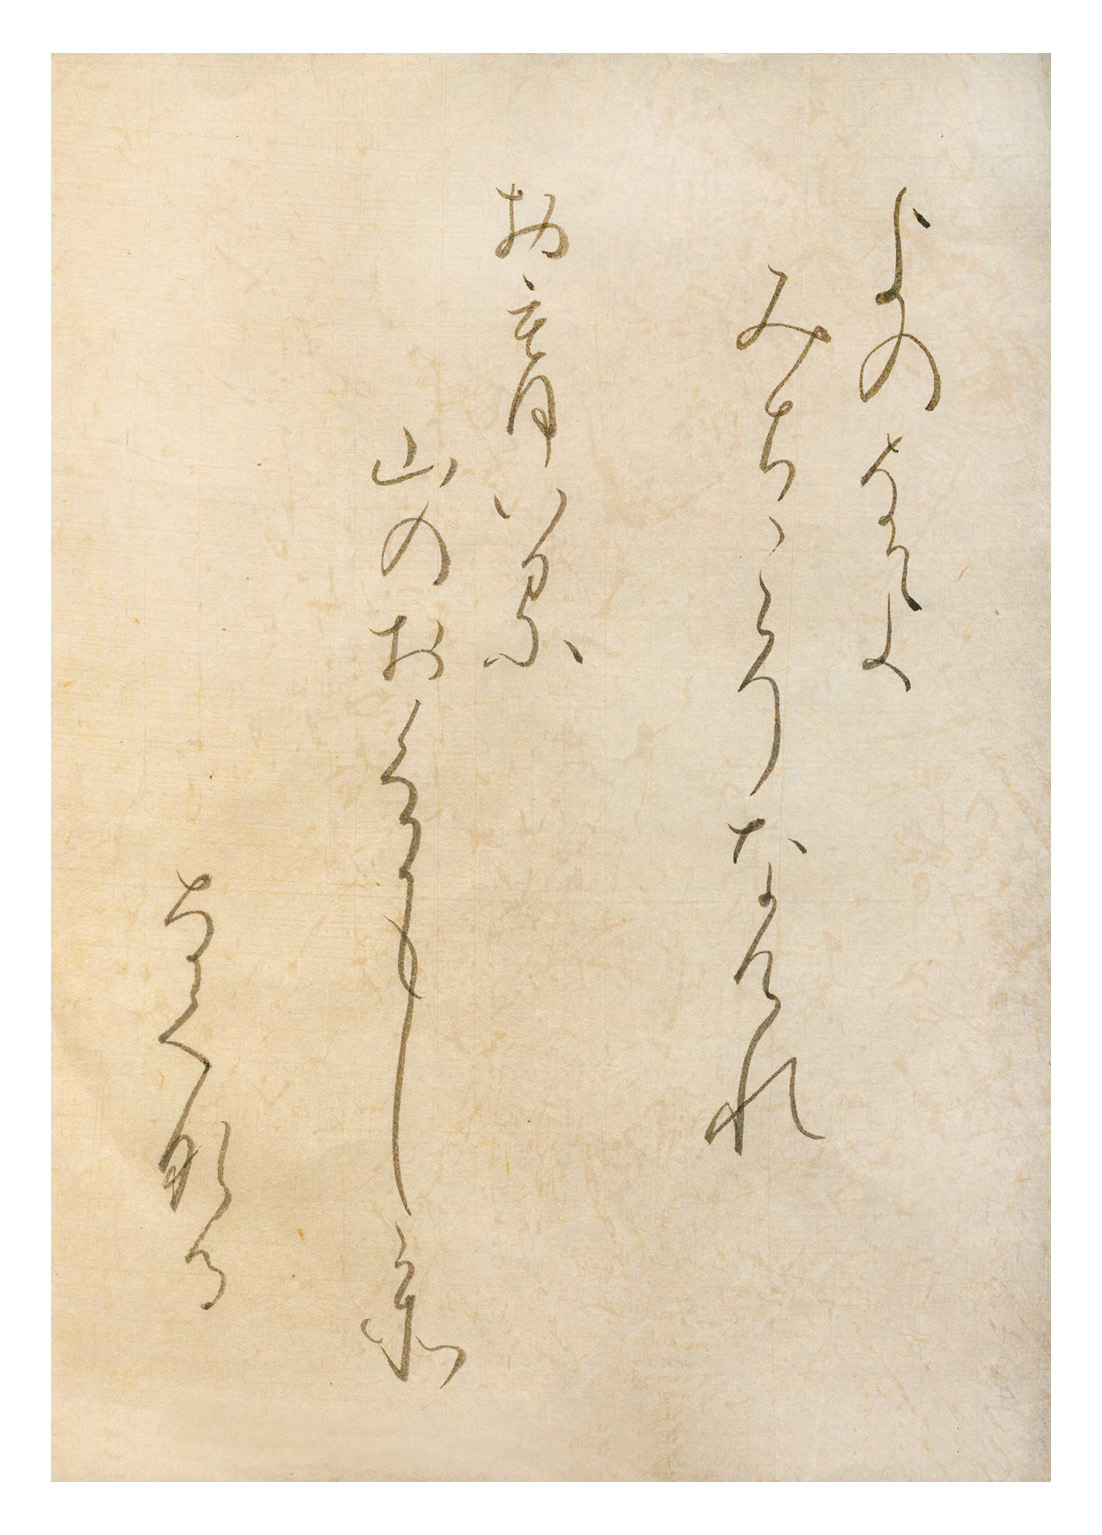 よのなかよ
みちこそなけれ
おもひいる
山のおくにもしかそ
なくなる